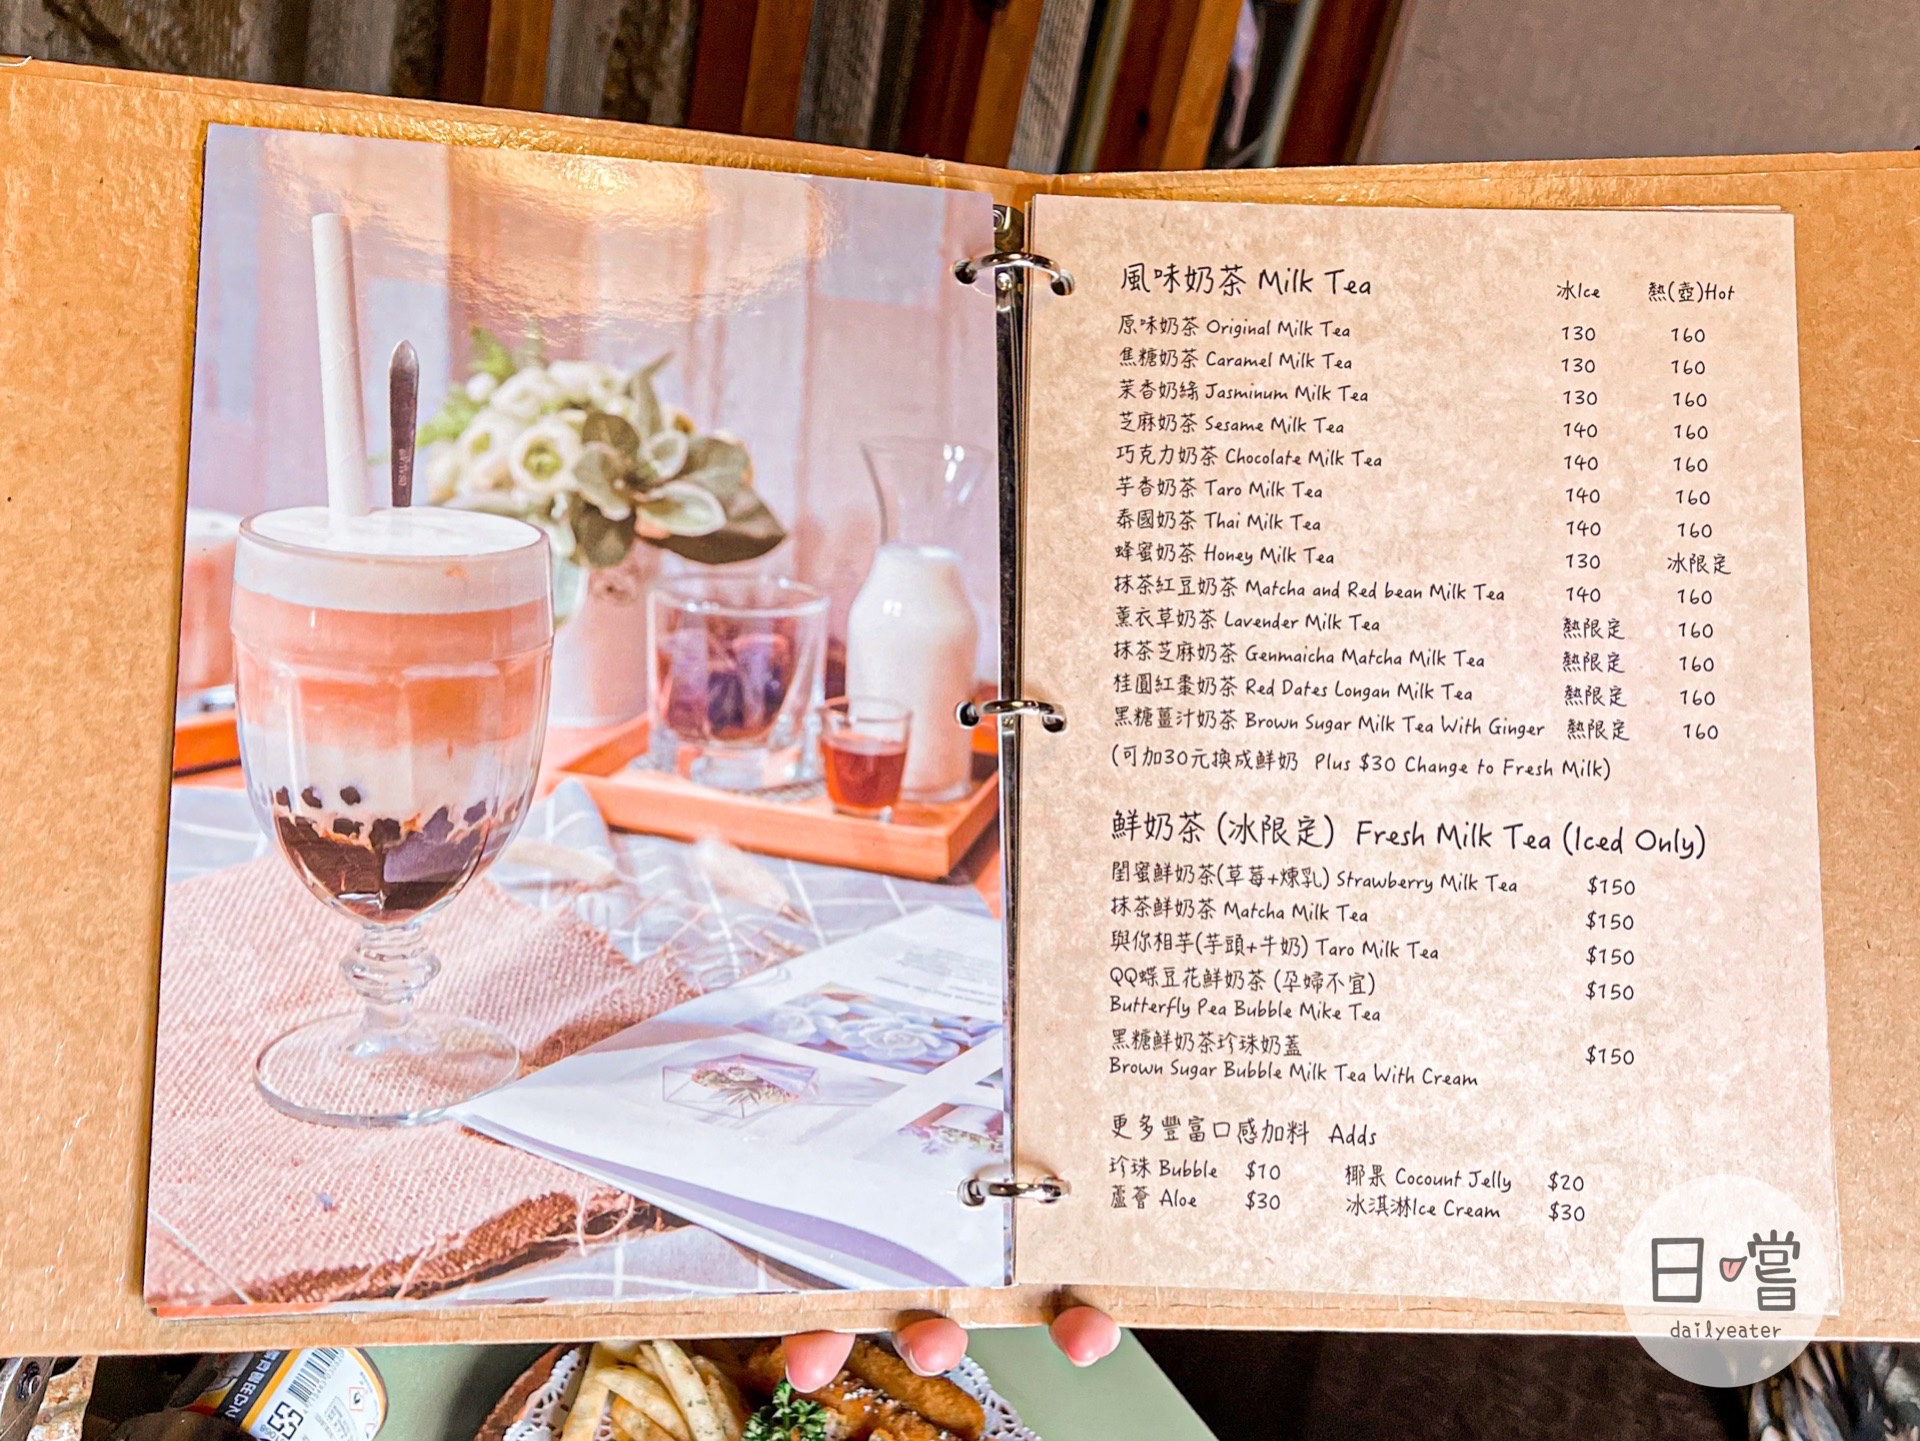 風味奶茶 Milk Tea 冰Ice 熱(壺)Hot
原味奶茶 Original Milk Tea 130 160
焦糖奶茶 Caramel Milk Tea 130 160
茉香奶綠 Jasminum Milk Tea 130 160
芝麻奶茶 Sesame Milk Tea 140 160
巧克力奶茶 Chocolate Milk Tea 140 160
芋香奶茶 Taro Milk Tea 140 160
泰國奶茶 Thai Milk Tea 140 160
蜂蜜奶茶 Honey Milk Tea 130 冰限定
抹茶紅豆奶茶 Matcha and Red bean Milk Tea 140 160
薰衣草奶茶 Lavender Milk Tea 熱限定 160
抹茶芝麻奶茶 Genmaicha Matcha Milk Tea 熱限定 160
桂圓紅棗奶茶 Red Dates Longan Milk Tea 熱限定 160
黑糖薑汁奶茶 Brown Sugar Milk Tea With Ginger 熱限定 160
(可加30元換成鮮奶 Plus $30 Change to Fresh Milk)
鮮奶茶 (冰限定) Fresh Milk Tea (Iced Only)
閨蜜鮮奶茶(草莓+煉乳) Strawberry Milk Tea $150
抹茶鮮奶茶 Matcha Milk Tea $150
與你相芋(芋頭+牛奶) Taro Milk Tea $150
QQ蝶豆花鮮奶茶 (孕婦不宜) $150
Butterfly Pea Bubble Mike Tea
黑糖鮮奶茶珍珠奶蓋 $150
Brown Sugar Bubble Milk Tea With Cream
更多豐富口感加料 Adds
珍珠 Bubble $10 椰果 Cocount Jelly $20
蘆薈 Aloe $30 冰淇淋Ice Cream $30
日嚐
dailyeater